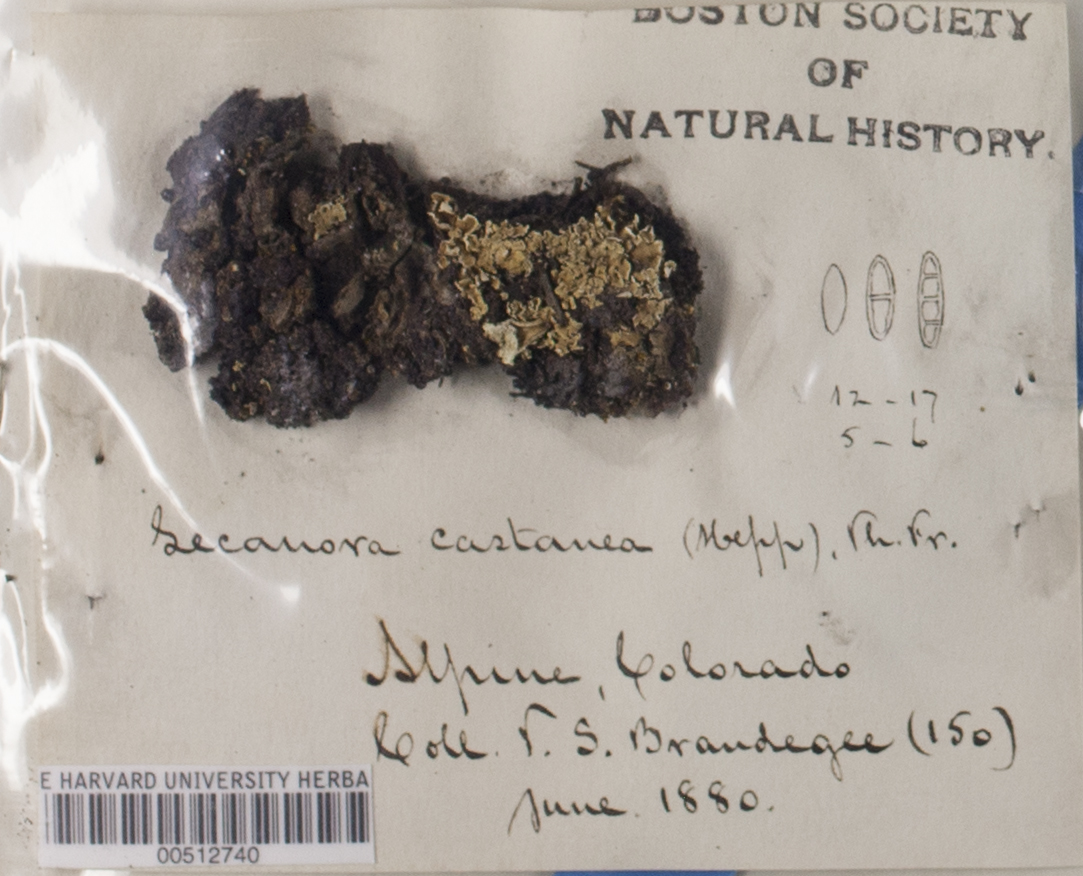 BOSTON SOCIETY
OF
NATURAL HISTORY.
12-17
5-6
Lecanora castanea (Hepp), Th. Fr.
Alpine, Colorado
Coll. T. S. Brandegee (150)
June. 1880.
E HARVARD UNIVERSITY HERBA
00512740